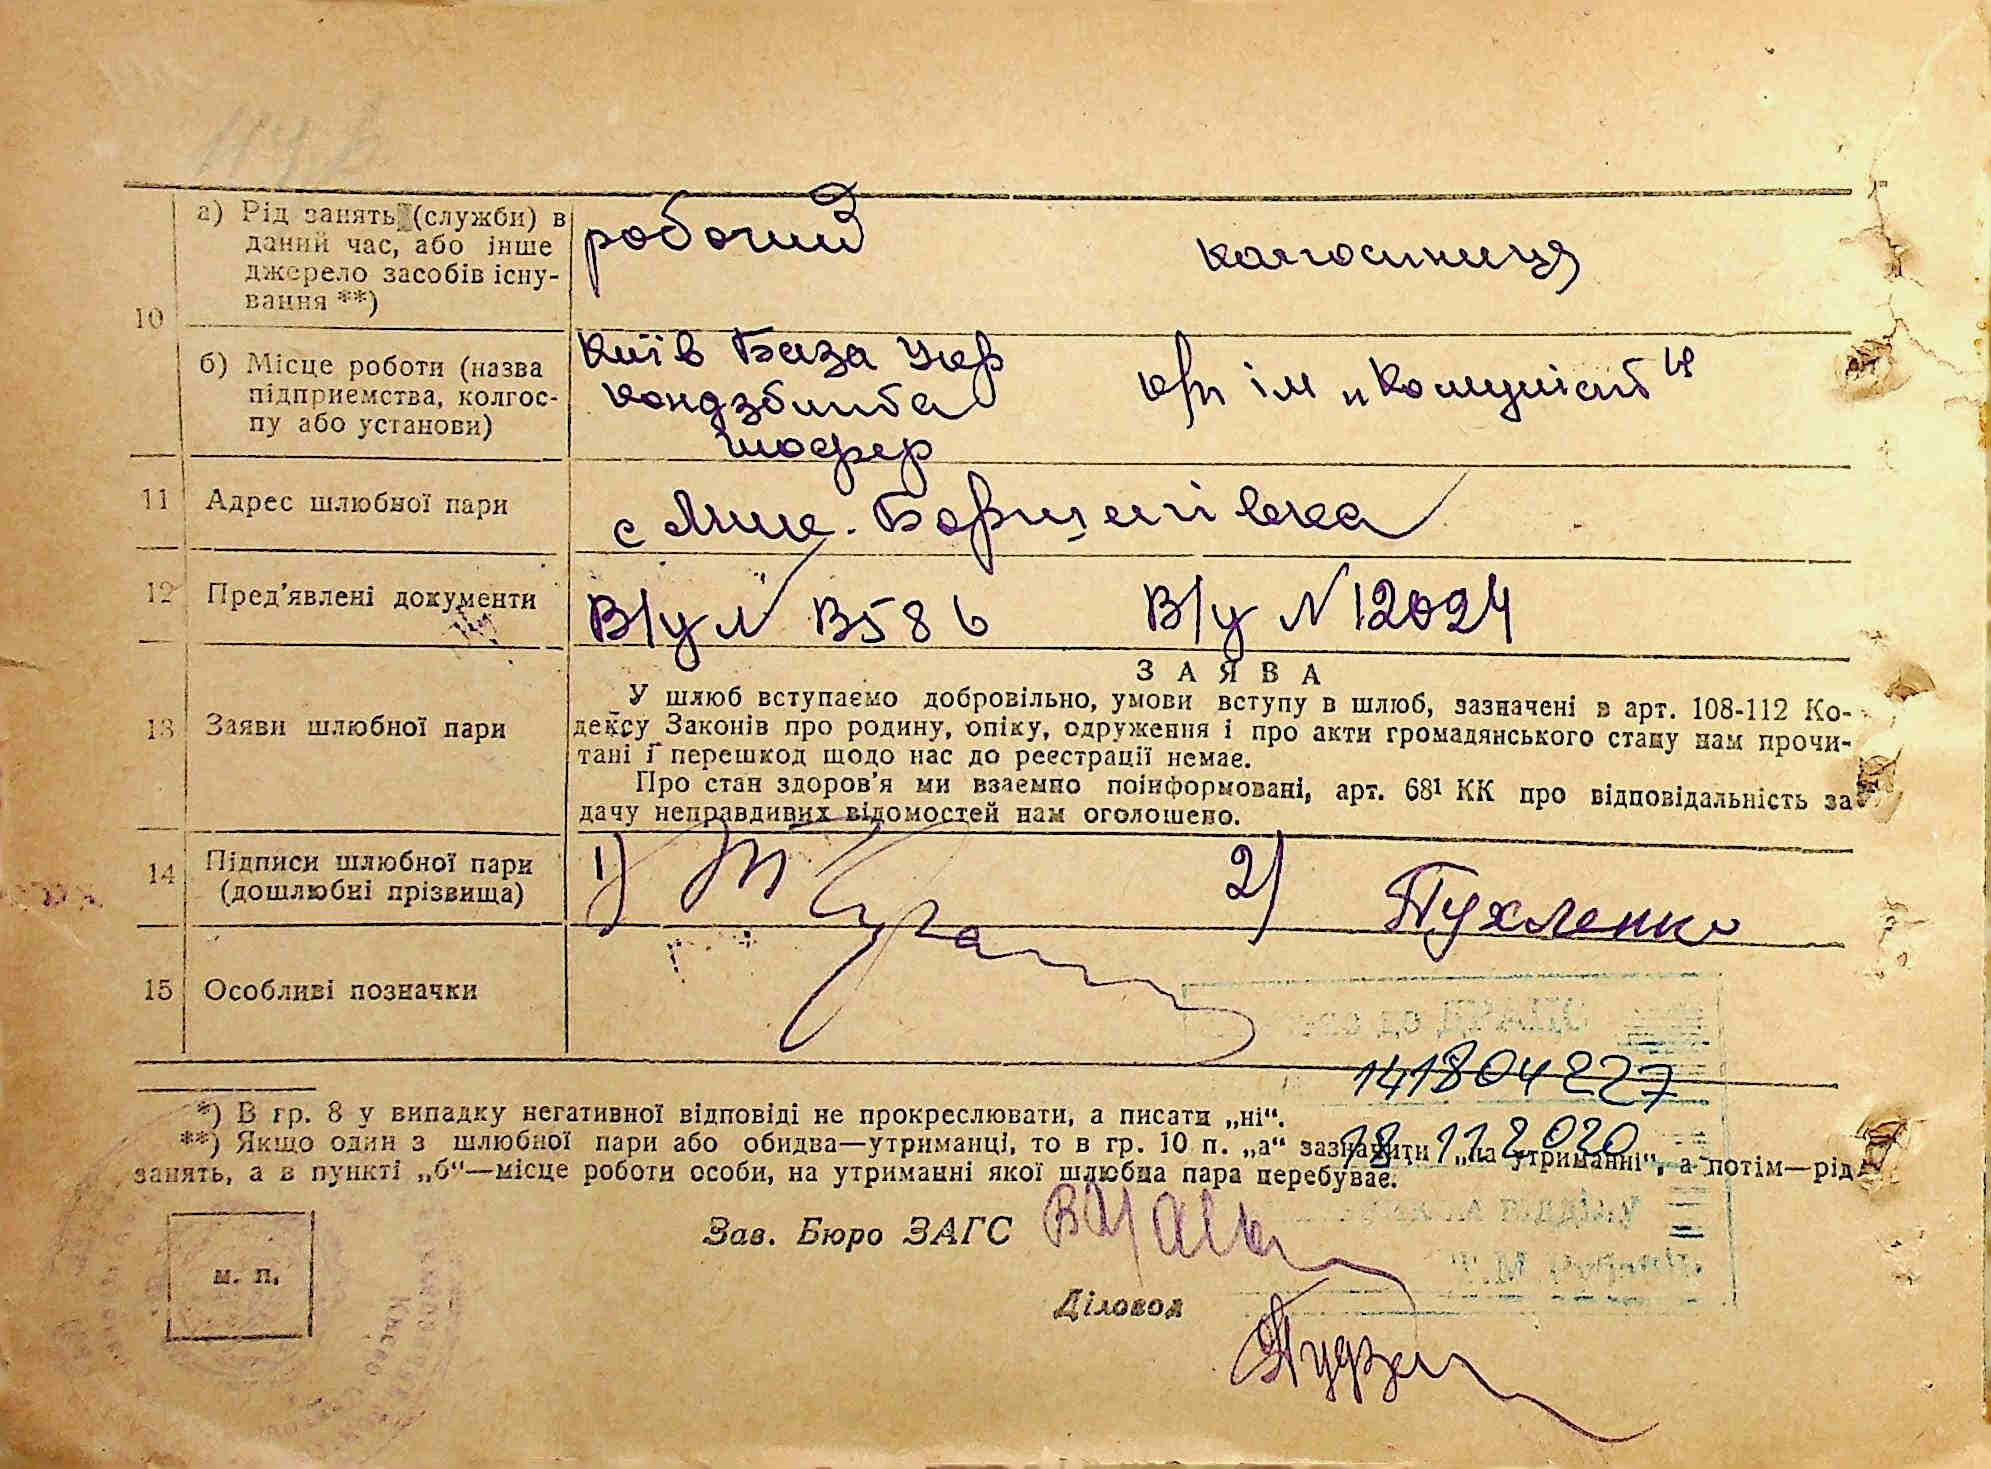 а) Рід занять (служби) в
даний час, або інше
джерело засобів існу-
вання **)
робочий
колгоспниця
10
б) Місце роботи (назва
підприємства, колгос-
пу або установи)
Київ База Укр
шофер
ім „Комуніст"
11 Адрес шлюбної пари
с Мик. Борщагівка
12 Пред'явлені документи
В/у № В586 В/у № 12024
ЗАЯВА
13 Заяви шлюбної пари
У шлюб вступаємо добровільно, умови вступу в шлюб, зазначені в арт. 108-112 Ко-
дексу Законів про родину, опіку, одруження і про акти громадянського стану нам прочи-
тані і перешкод щодо нас до реєстрації немає.
Про стан здоров'я ми взаємно поінформовані, арт. 68¹ КК про відповідальність за
дачу неправдивих відомостей нам оголошено.
14 Підписи шлюбної пари
(дошлюбні прізвища)
1)
2) Пухленко
15 Особливі позначки
141804227
*) В гр. 8 у випадку негативної відповіді не прокреслювати, а писати „ні".
18.11.2020
**) Якщо один з шлюбної пари або обидва—утриманці, то в гр. 10 п. „а" зазначити „на утриманні", а потім—рід
занять, а в пункті „б"—місце роботи особи, на утриманні якої шлюбна пара перебуває.
Зав. Бюро ЗАГС
м. п.
Діловод